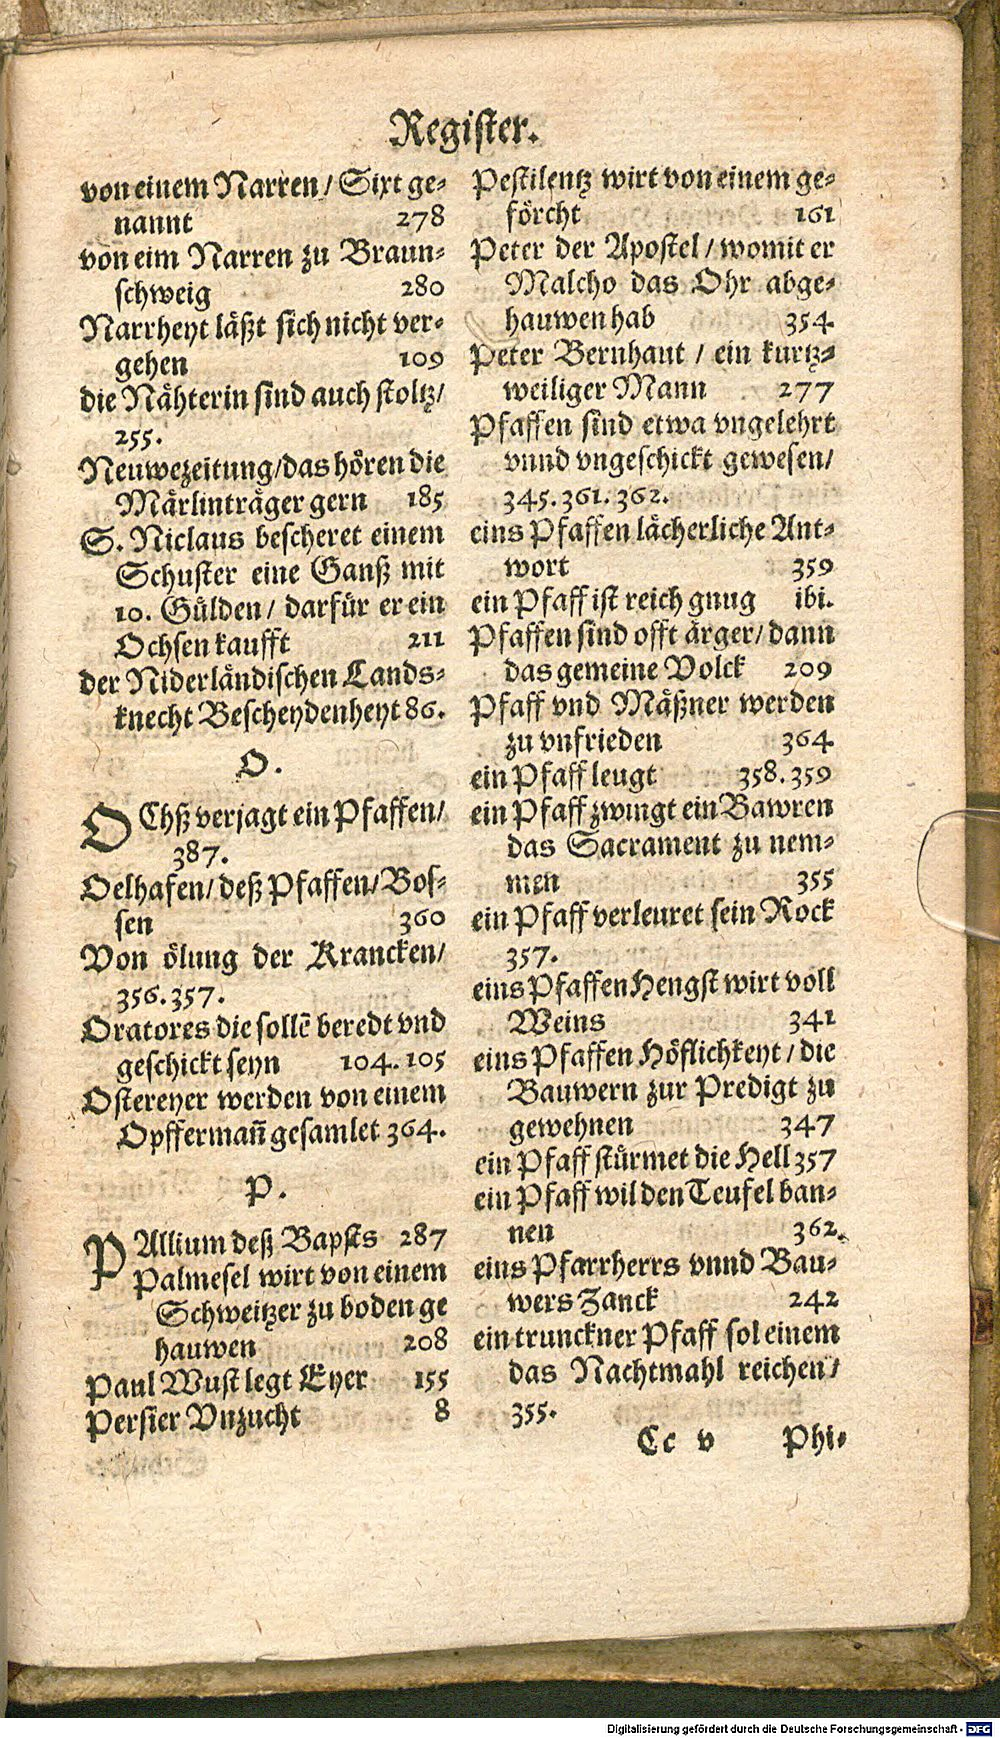 Register.
von einem Narren / Sixt ge-
nannt 278
von eim Narren zu Braun-
schweig 280
Narrheyt läßt sich nicht ver-
gehen 109
die Nähterin sind auch stoltz /
255.
Neuwezeitung / das hören die
Märlinträger gern 185
S. Niclaus bescheret einem
Schuster eine Ganß mit
10. Gülden / darfür er ein
Ochsen kaufft 211
der Niderländischen Lands-
knecht Bescheydenheyt 86.
O.
OChß verjagt ein Pfaffen /
387.
Oelhafen / deß Pfaffen / Bos-
sen 360
Von ölung der Krancken /
356. 357.
Oratores die sollē beredt vnd
geschickt seyn 104. 105
Ostereyer werden von einem
Opffermañ gesamlet 364.
P.
PAllium deß Bapsts 287
Palmesel wirt von einem
Schweitzer zu boden ge
hauwen 208
Paul Wust legt Eyer 155
Persier Vnzucht 8
Pestilentz wirt von einem ge-
förcht 161
Peter der Apostel / womit er
Malcho das Ohr abge-
hauwen hab 354
Peter Bernhaut / ein kurtz-
weiliger Mann 277
Pfaffen sind etwa vngelehrt
vnnd vngeschickt gewesen /
345. 361. 362.
eins Pfaffen lächerliche Ant-
wort 359
ein Pfaff ist reich gnug ibi.
Pfaffen sind offt ärger / dann
das gemeine Volck 209
Pfaff vnd Mäßner werden
zu vnfrieden 364
ein Pfaff leugt 358. 359
ein Pfaff zwingt ein Bawren
das Sacrament zu nem-
men 355
ein Pfaff verleuret sein Rock
357.
eins Pfaffen Hengst wirt voll
Weins 341
eins Pfaffen Höflichkeyt / die
Bauwern zur Predigt zu
gewehnen 347
ein Pfaff stürmet die Hell 357
ein Pfaff wil den Teufel ban-
nen 362.
eins Pfarrherrs vnnd Bau-
wers Zanck 242
ein trunckner Pfaff sol einem
das Nachtmahl reichen /
355.
Cc v Phi-
Digitalisierung gefördert durch die Deutsche Forschungsgemeinschaft - DFG